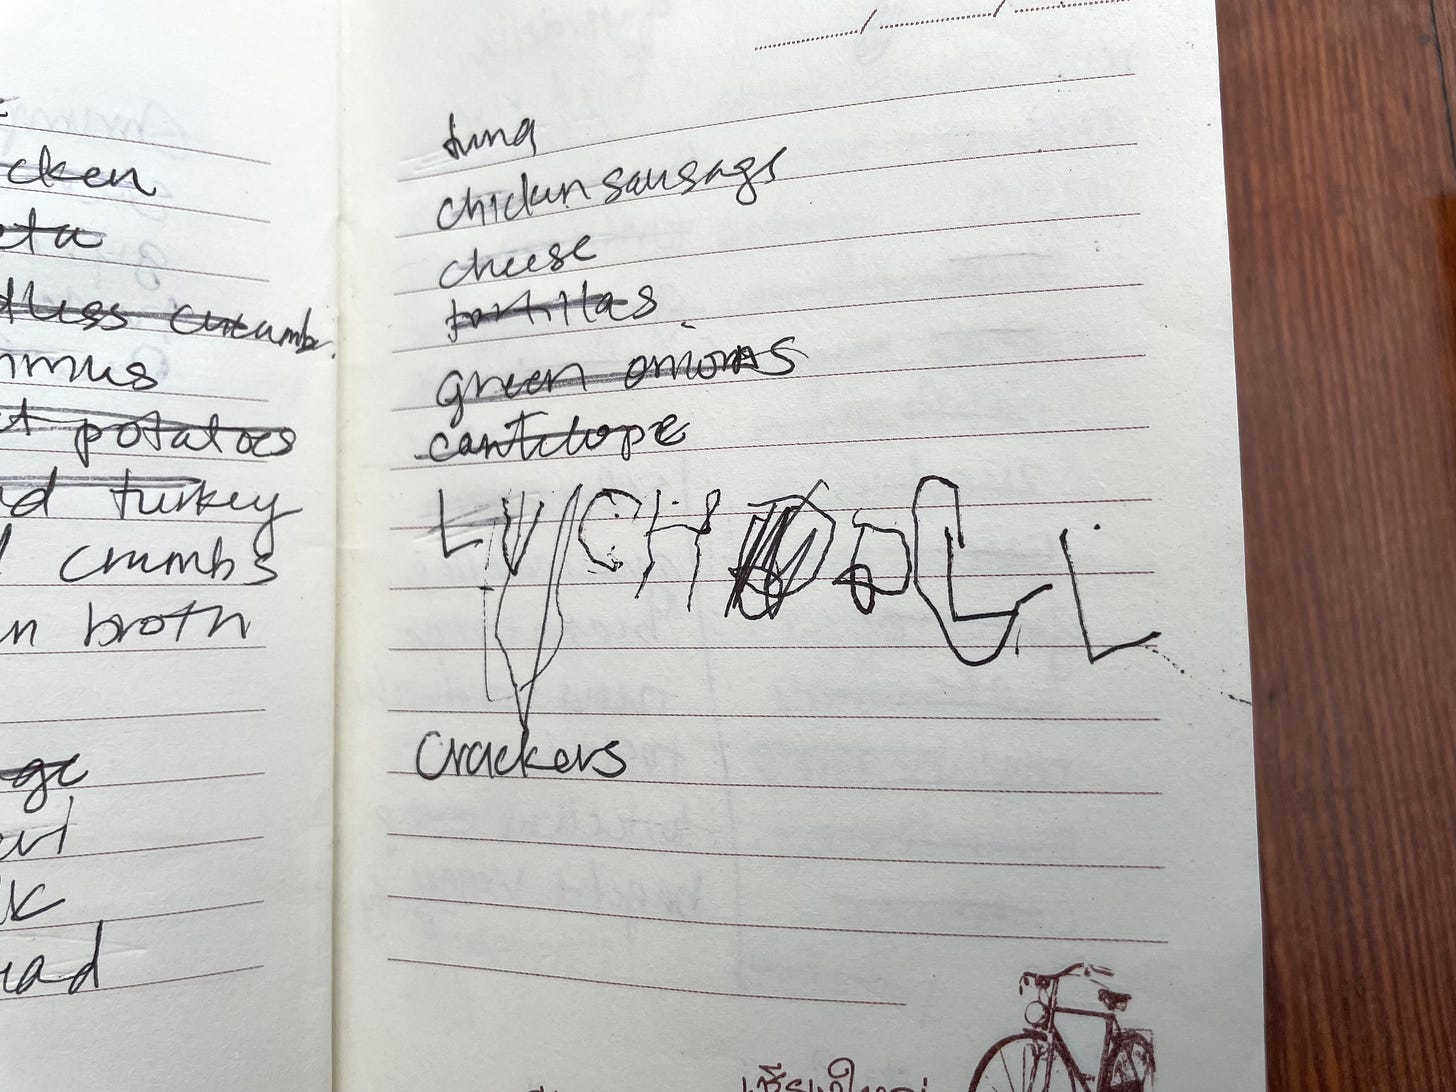 cken
eta
dless cucumb
mmus
t potatoes
d turkey
crumbs
n broth
ge
lk
ad
tuna
chicken sausags
cheese
tortillas
green onions
cantelope
crackers
เชียงใหม่